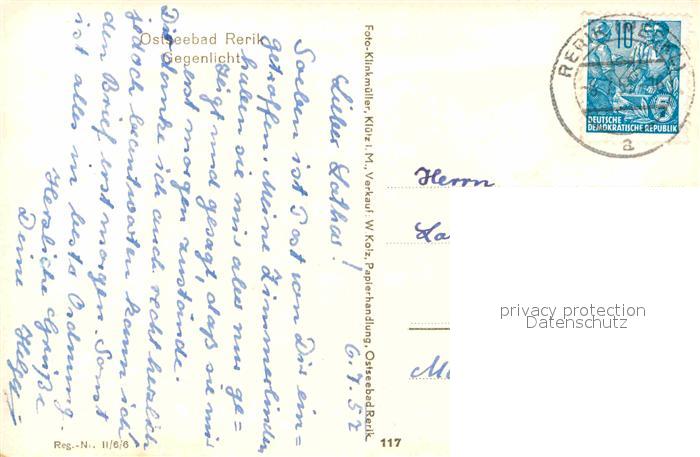 Ostseebad Rerik
Gegenlicht
6.7.57
Lieber Lothar!
Soeben ist Post von Dir ein=
getroffen. Meine Zimmerlinden
haben sie mir aber nur ge=
zeigt und gesagt, daß sie mir
erst morgen zustände.
Dir danke ich auch recht herzlich
jedoch beantworten kann ich
den Brief erst morgen. Sonst
ist alles in bester Ordnung.
Herzliche Grüße
Deine
Foto-Klinkmüller, Klütz i. M., Verkauf: W Kolz, Papierhandlung, Ostseebad Rerik.
Reg.-Nr. II/6/6
117
RERIK
a
10
DEUTSCHE
DEMOKRATISCHE REPUBLIK
Herrn
privacy protection
Datenschutz